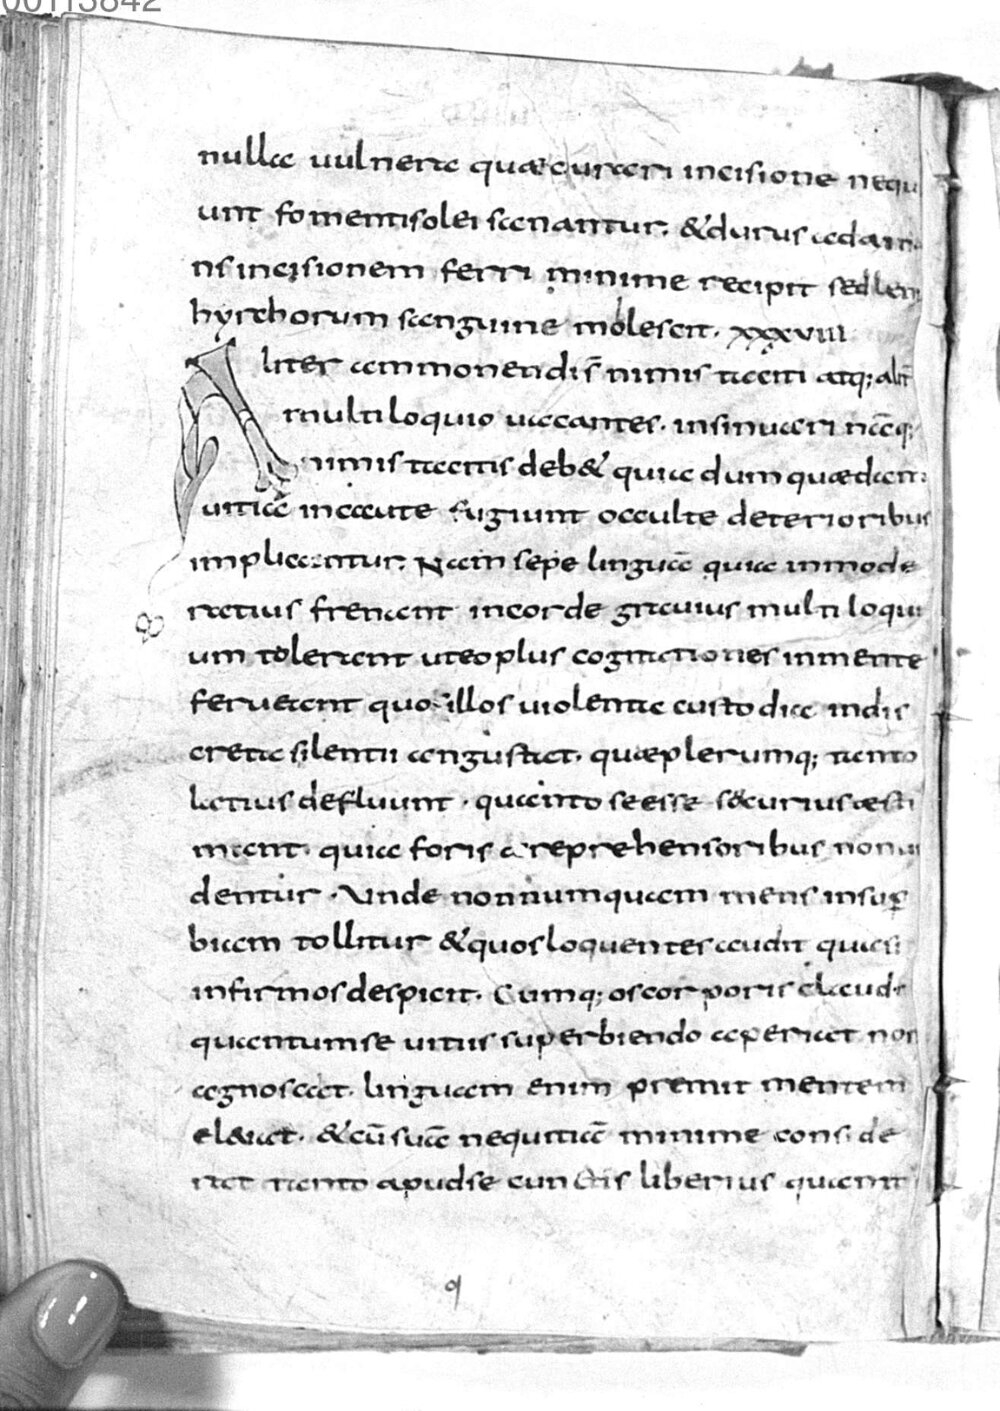 00113842
nulla uulnera quæ curari incisione nequ
unt fomentis olei sanantur. & durus adama
ns incisionem ferri minime recipit sed leni
hyrchorum sanguine molescit. xxxviii
Aliter ammonendi s̄ nimis taciti atq; alit̄
multiloquio uacantes. insinuari nāq;
nimis tacitis deb& quia dum quædam
uitia incaute fugiunt occulte deterioribus
implicantur. Nam sepe linguā quia inmode
ratius frenant in corde grauius multiloqui
um tolerant ut eo plus cogitationes in mente
ferueant quo illos uiolenta custodia indis
creta silentii angustat. quæ plerumq; tanto
latius defluunt. quanto se esse securius æsti
mant. quia foris a reprehensoribus non ui
dentur. Unde nonnumquam mens in sup̄
biam tollitur & quos loquentes audit quasi
infirmos despicit. Cumq; os corporis claudit
quantum se uitiis superbiendo aperiat non
agnoscat. linguam enim premit mentem
eleuat. & cū suā nequitiā minime conside
rat tanto apud se cunctis liberius quant
q